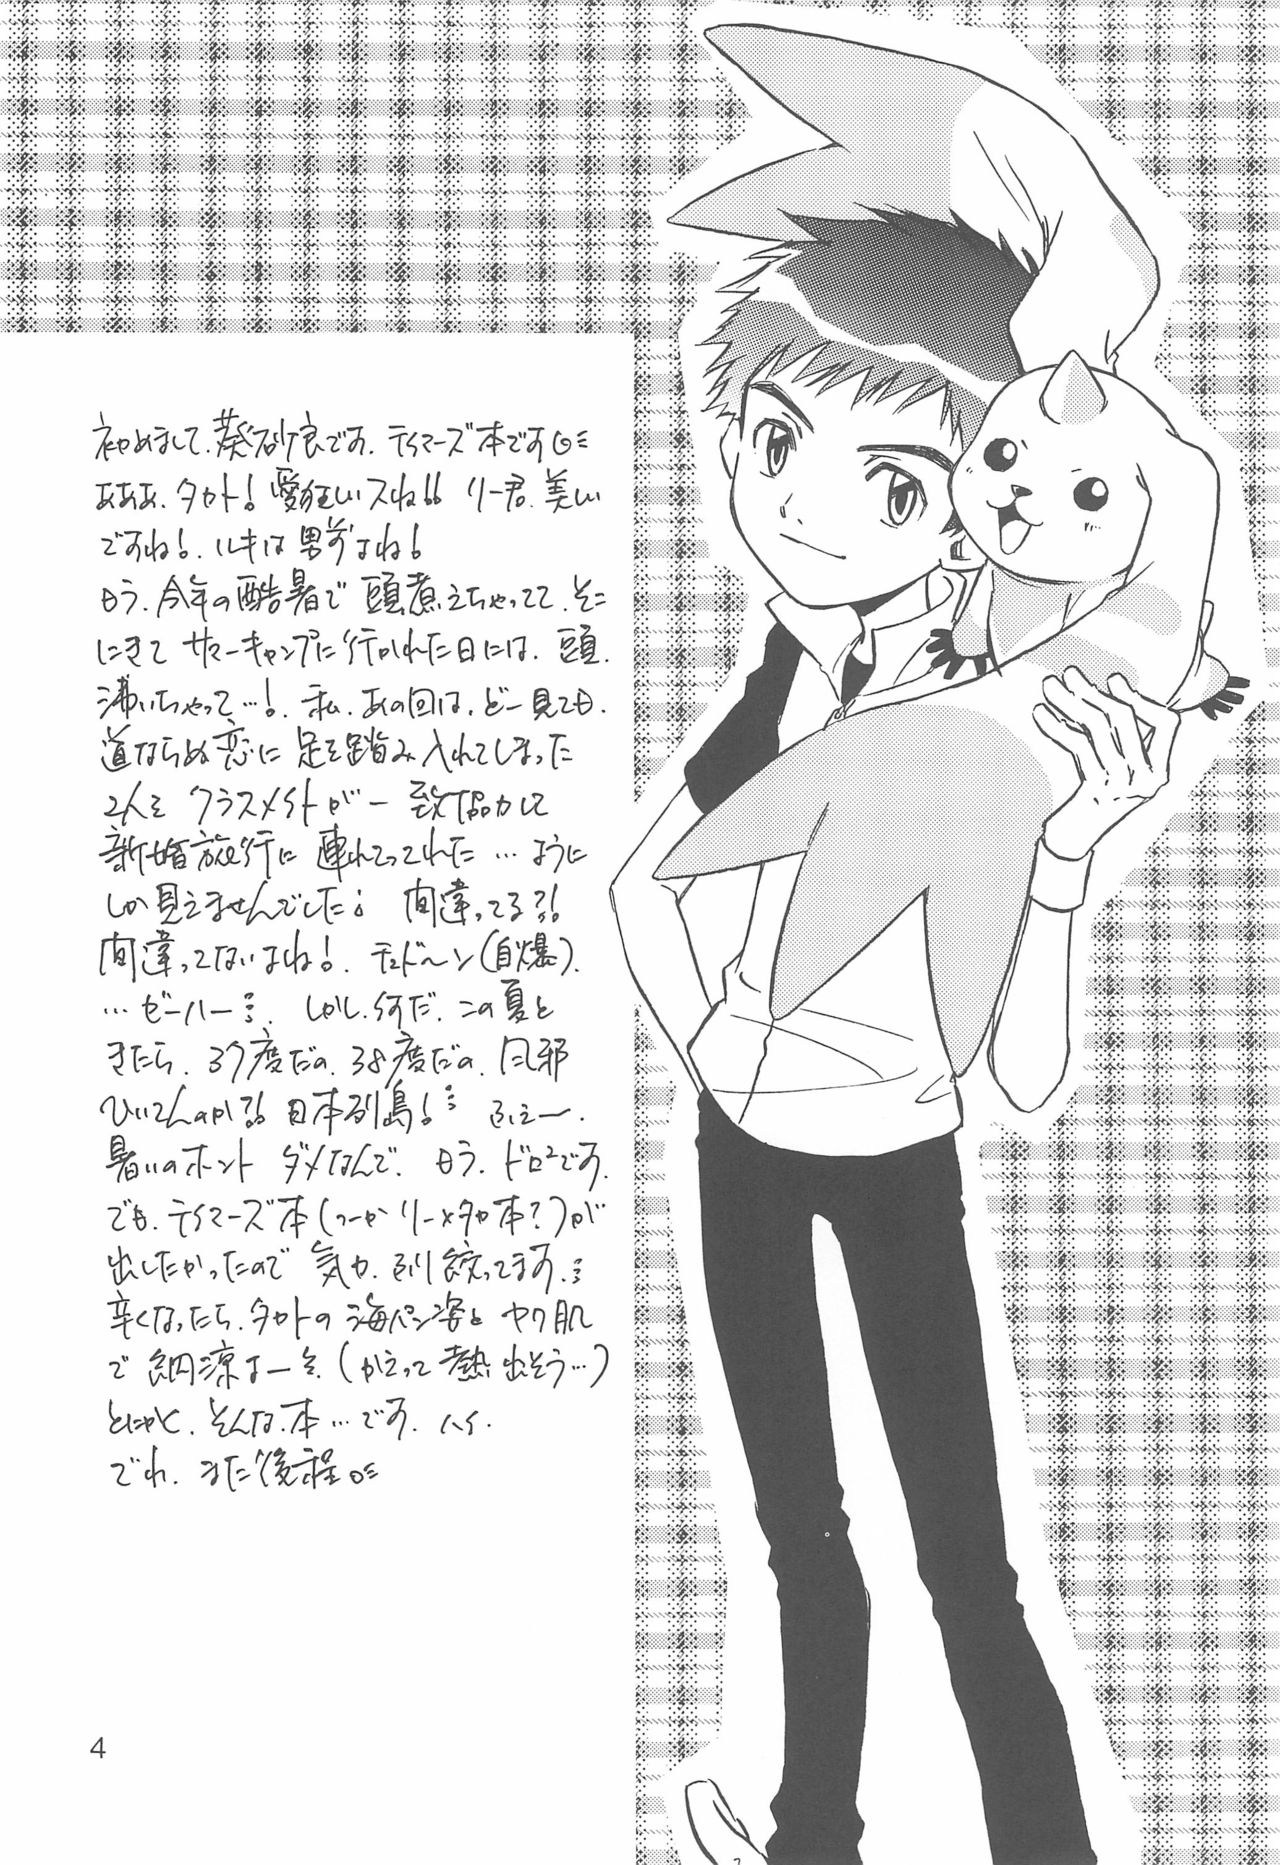 初めまして、葵砂良です。テイマーズ本です
あああ、タカト!愛狂しいスね!!リー君、美しい
ですね!、ルキは男前よね!
もう、今年の酷暑で 頭煮えちゃってて、そこ
にきて サマーキャンプに行かれた日には、頭、
沸いちゃって…!、私、あの回は、どー見ても、
道ならぬ恋に 足を踏み入れてしまった
2人を クラスメイトが一致協力して
新婚旅行に 連れてってれた…ように
しか見えませんでした! 間違ってる?!
間違ってないよね!、チュドーン(自爆)、
…ゼーハー…、しかし、何だ、この夏と
きたら、37度だの、38度だの、風邪
ひいてんのか?! 日本列島!… ふえー、
暑いのホント ダメなんで、もう、ドロドロです、
でも、テイマーズ本(つーかリー×タカ本?)が
出したかったので 気力、ふり絞ってます、…
辛くなったら、タカトの海パン姿と ヤワ肌
で 納涼よーを、(かえって 熱出そう…)
とにかく、そんな、本…です、ハイ、
でわ、また後程
4